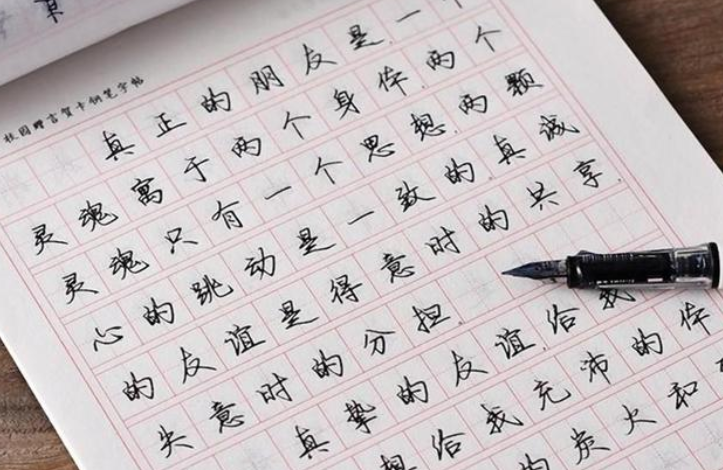 校园赠言贺卡钢笔字帖
真正的朋友是一
灵魂寓于两个身体两个
灵魂只有一个思想两颗
心的跳动是一致的真诚
的友谊是得意时的共享
失意时的分担
真挚的友谊给我
想给我充沛的体
的炭火和